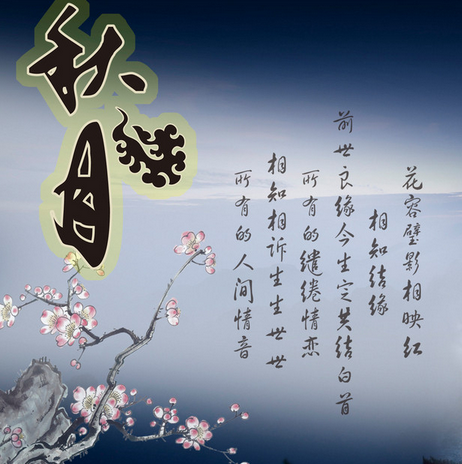 秋月
花容璧影相映红
相知结缘
前世良缘今生定共结白首
所有的缱绻情恋
相知相诉生生世世
所有的人间情音